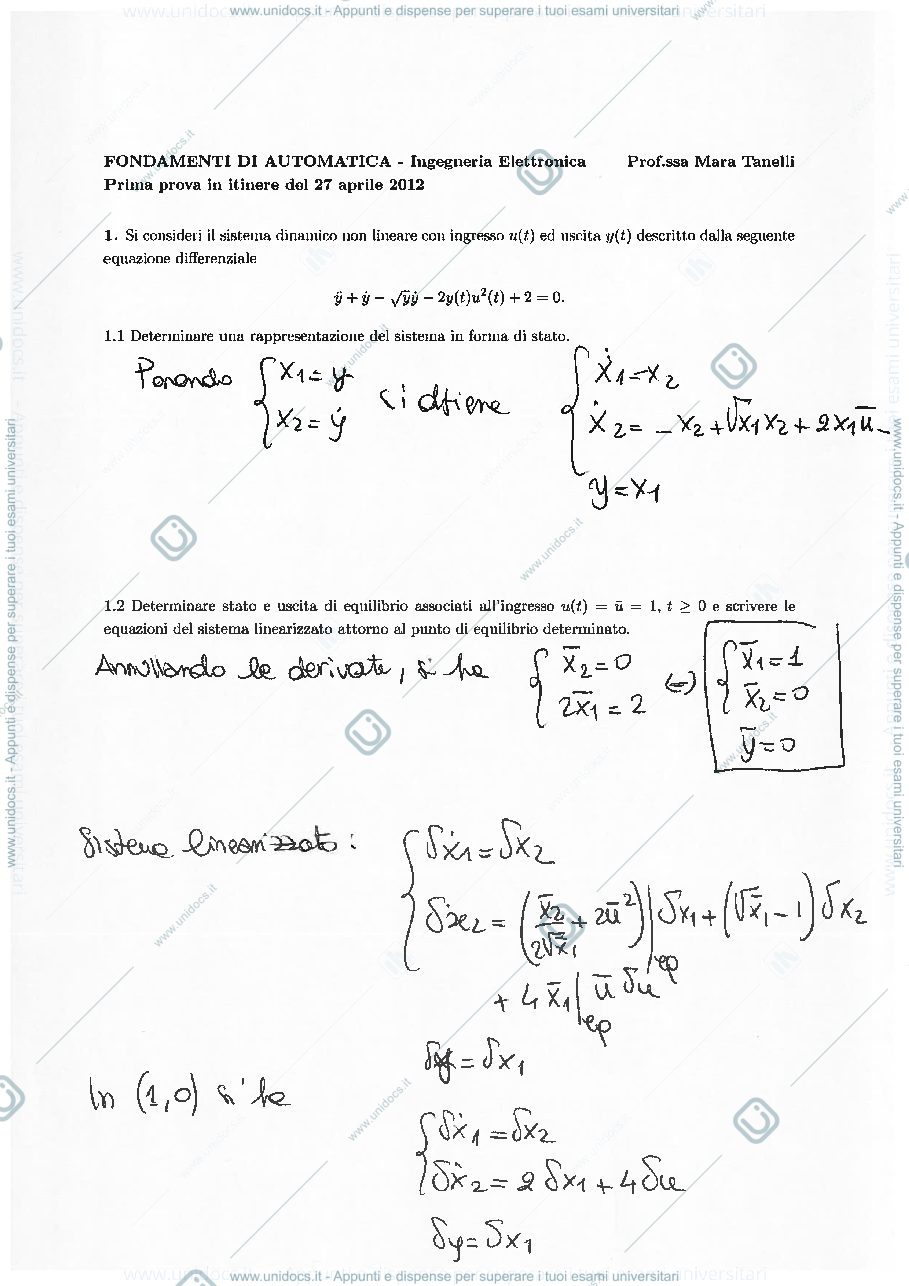 www.unidocs.it - Appunti e dispense per superare i tuoi esami universitari
FONDAMENTI DI AUTOMATICA - Ingegneria Elettronica Prof.ssa Mara Tanelli
Prima prova in itinere del 27 aprile 2012
1. Si consideri il sistema dinamico non lineare con ingresso u(t) ed uscita y(t) descritto dalla seguente
equazione differenziale
ÿ + ẏ − √y ẏ − 2y(t)u²(t) + 2 = 0.
1.1 Determinare una rappresentazione del sistema in forma di stato.
Ponendo { x1 = y
x2 = ẏ
si ottiene
{ ẋ1 = x2
ẋ2 = − x2 + √x1 x2 + 2x1 u −
y = x1
1.2 Determinare stato e uscita di equilibrio associati all'ingresso u(t) = ū = 1, t ≥ 0 e scrivere le
equazioni del sistema linearizzato attorno al punto di equilibrio determinato.
Annullando le derivate, si ha { x̄2 = 0
2x̄1 = 2
⇔ { x̄1 = 1
x̄2 = 0
ȳ = 0
Sistema linearizzato : { δẋ1 = δx2
δẋ2 = (x̄2/2√x̄1 + 2ū²)|ep δx1 + (√x̄1 − 1) δx2
+ 4 x̄1|ep ū δu
δy = δx1
In (1,0) si ha
{ δẋ1 = δx2
δẋ2 = 2 δx1 + 4 δu
δy = δx1
www.unidocs.it - Appunti e dispense per superare i tuoi esami universitari